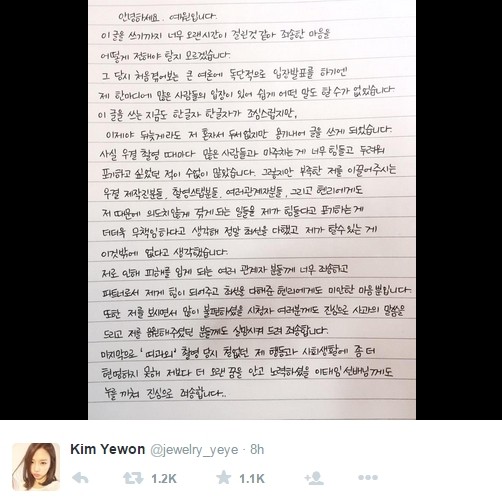 안녕하세요. 예원입니다.
이 글을 쓰기까지 너무 오랜시간이 걸린것 같아 죄송한 마음을
어떻게 전해야 할지 모르겠습니다.
그 당시 처음겪어보는 큰 여론에 독단적으로 입장발표를 하기엔
제 한마디에 많은 사람들의 입장이 있어 쉽게 어떤 말도 할 수가 없었습니다.
이 글을 쓰는 지금도 한글자 한글자가 조심스럽지만,
이제야 뒤늦게라도 저 혼자서 두서없지만 용기내어 글을 쓰게 되었습니다.
사실 우결 촬영 때마다 많은 사람들과 마주치는게 너무 힘들고 두려워
포기하고 싶었던 적이 수없이 많았습니다. 그렇지만 부족한 저를 이끌어주시는
우결 제작진분들, 촬영스텝분들, 여러관계자분들, 그리고 헨리에게도
저 때문에 의도치않게 겪게 되는 일들을 제가 힘들다고 포기하는게
더더욱 무책임하다고 생각해 정말 최선을 다했고 제가 할수 있는 게
이것밖에 없다고 생각했습니다.
저로 인해 피해를 입게 되는 여러 관계자 분들께 너무 죄송하고
파트너로서 제게 힘이 되어주고 최선을 다해준 헨리에게도 미안한 마음뿐입니다.
또한 저를 보시면서 많이 불편하셨을 시청자 여러분께도 진심으로 사과의 말씀을
드리고 저를 응원해주었던 분들께도 실망시켜 드려 죄송합니다.
마지막으로 '띠과외' 촬영 당시 철없던 제 행동과 사회생활에 좀 더
현명하지 못해 저보다 더 오랜 꿈을 안고 노력하셨을 이태임 선배님께도
누를 끼쳐 진심으로 죄송합니다..
Kim Yewon @jewelry_yeye · 8h
1.2K 1.1K